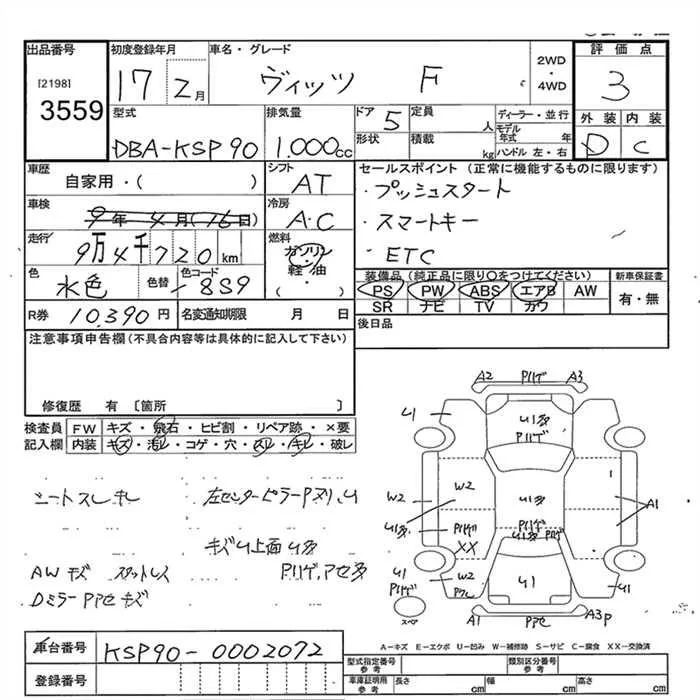 出品番号
[2198]
3559
初度登録年月
17 2月
車名・グレード
ヴィッツ F
2WD
・
4WD
評価点
3
外装 内装
D C
型式
DBA-KSP90
排気量
1.000cc
ドア
5
定員
人
形状
積載
kg
ディーラー・並行
モデル年式 年
ハンドル 左・右
車歴
自家用・( )
シフト
AT
車検
9年 4月(16日)
冷房
A.C
走行
9万4千720km
燃料
ガソリン
軽・油
・( )
色
水色
色替
色コード
889
R券 10,390円
名変通知期限 月 日
セールスポイント (正常に機能するものに限ります)
・プッシュスタート
・スマートキー
・ETC
装備品(純正品に限り○をつけてください)
PS PW ABS エアB AW
SR ナビ TV カワ
新車保証書
有・無
後日品
注意事項申告欄(不具合内容等は具体的に記入して下さい)
修復歴 有 〔箇所 〕
検査員記入欄
FW キズ・飛石・ヒビ割・リペア跡・×要
内装 キズ・汚レ・コゲ・穴・スレ・キレ・破レ
シートスレ
左センターピラーPヌリ, U
キズU上面U多
AW キズ
Pハゲ, アセ多
Dミラー Pアセ キズ
A2 Pハゲ A3
U1
U1多
Pハゲ
W2
W2
U1多
A1
U1多
Pハゲ
Pハゲ
U1多
XX
U1
Pハゲ
W2
U1
U1
スペア
A1 Pアセ A3P
A-キズ E-エクボ U-凹み W-補修跡 S-サビ C-腐食 XX-交換済
車台番号 KSP90-0002072
登録番号
型式指定番号
参考
類別区分番号
参考
車庫証明用
参考
長さ cm
幅 cm
高さ cm